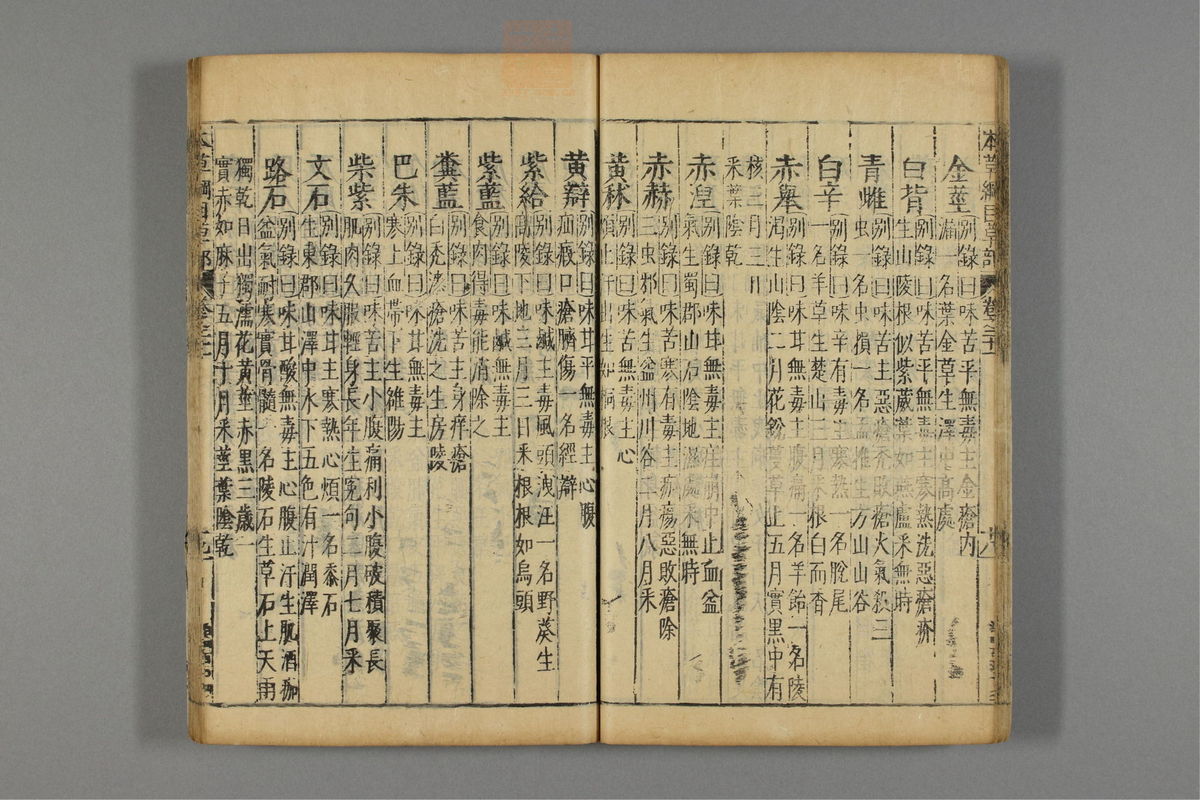 本草綱目草部 卷二十一
金莖 別錄曰味苦平無毒主金瘡內
漏一名葉金草生澤中高處
白背 別錄曰味苦平無毒主寒熱洗惡瘡疥
生山陵根似紫葳葉如燕盧采無時
青雌 別錄曰味苦主惡瘡禿敗瘡火氣殺三
蟲一名虫損一名孟推生方山山谷
白辛 別錄曰味辛有毒主寒熱一名脫尾
一名羊草生楚山三月采根白而香
赤舉 別錄曰味甘無毒主腹痛一名羊飴一名陵
渴生山陰二月花銳蔓草上五月實黑中有
核三月三日
采葉陰乾
赤涅 別錄曰味甘無毒主疰崩中止血益
氣生蜀郡山石陰地濕處采無時
赤赫 別錄曰味苦寒有毒主痂瘍惡敗瘡除
三虫邪氣生益州川谷二月八月采
黃秫 別錄曰味苦無毒主心
煩止汗出生如桐根
黃辯 別錄曰味甘平無毒主心腹
疝瘕口瘡臍傷一名經辯
紫給 別錄曰味鹹主毒風頭洩注一名野葵生
高陵下地三月三日采根根如烏頭
紫藍 別錄曰味鹹無毒主
食肉得毒能消除之
糞藍 別錄曰味苦主身痒瘡
白禿漆瘡洗之生房陵
巴朱 別錄曰味甘無毒主
寒上血帶下生雒陽
柴紫 別錄曰味苦主小腹痛利小腹破積聚長
肌肉久服輕身長年生冤句二月七月采
文石 別錄曰味甘主寒熱心煩一名黍石
生東郡山澤中水下五色有汁潤澤
路石 別錄曰味甘酸無毒主心腹止汗生肌酒痂
益氣耐寒實骨髓一名陵石生草石上天雨
獨乾日出獨濡花黃莖赤黑三歲一
實赤如麻子五月十月采莖葉陰乾
本草綱目草部 卷二十一